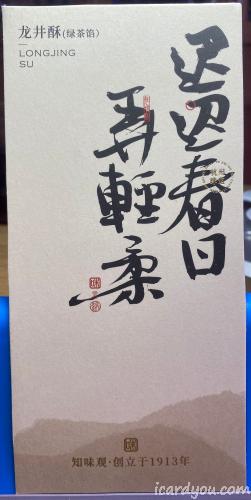 龙井酥(绿茶馅)
LONGJING
SU
迟迟春日
弄輕柔
知味观·创立于1913年
icardyou.com